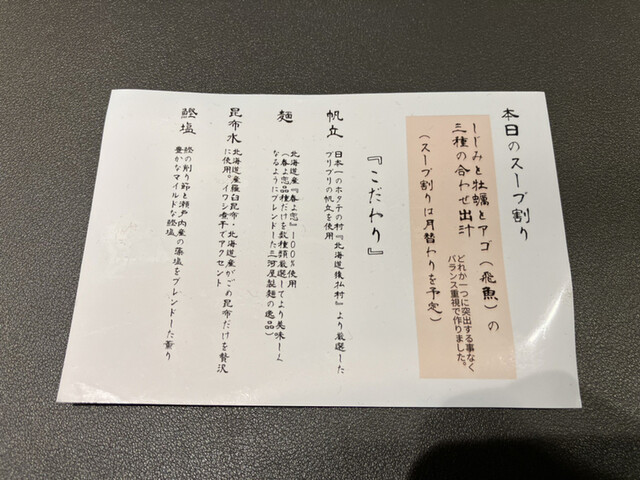 本日のスープ割り
しじみと牡蠣とアゴ(飛魚)の
三種の合わせ出汁
どれか一つに突出する事なく
バランス重視で作りました。
(スープ割りは月替わりを予定)
『こだわり』
帆立
日本一のホタテの村『北海道猿払村』より厳選した
プリプリの帆立を使用
麺
北海道産『春よ恋』100%使用
(春よ恋品種だけを数種類厳選してより美味しく
なるようにブレンドした三河屋製麺の逸品)
昆布水
北海道産羅臼昆布・北海道産がごめ昆布だけを贅沢
に使用。イワシ煮干でアクセント
鰹塩
鰹の削り節と瀬戸内産の藻塩をブレンドした薫り
豊かなマイルドな鰹塩